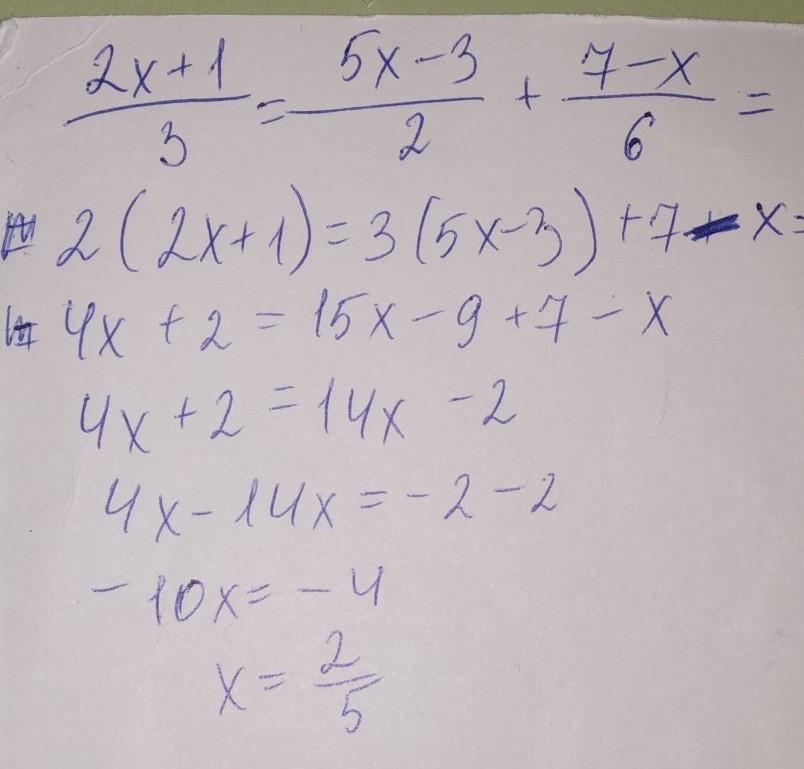 (2x+1)/3 = (5x-3)/2 + (7-x)/6 =
2(2x+1)=3(5x-3)+7-x=
4x+2=15x-9+7-x
4x+2=14x-2
4x-14x=-2-2
-10x=-4
x=2/5